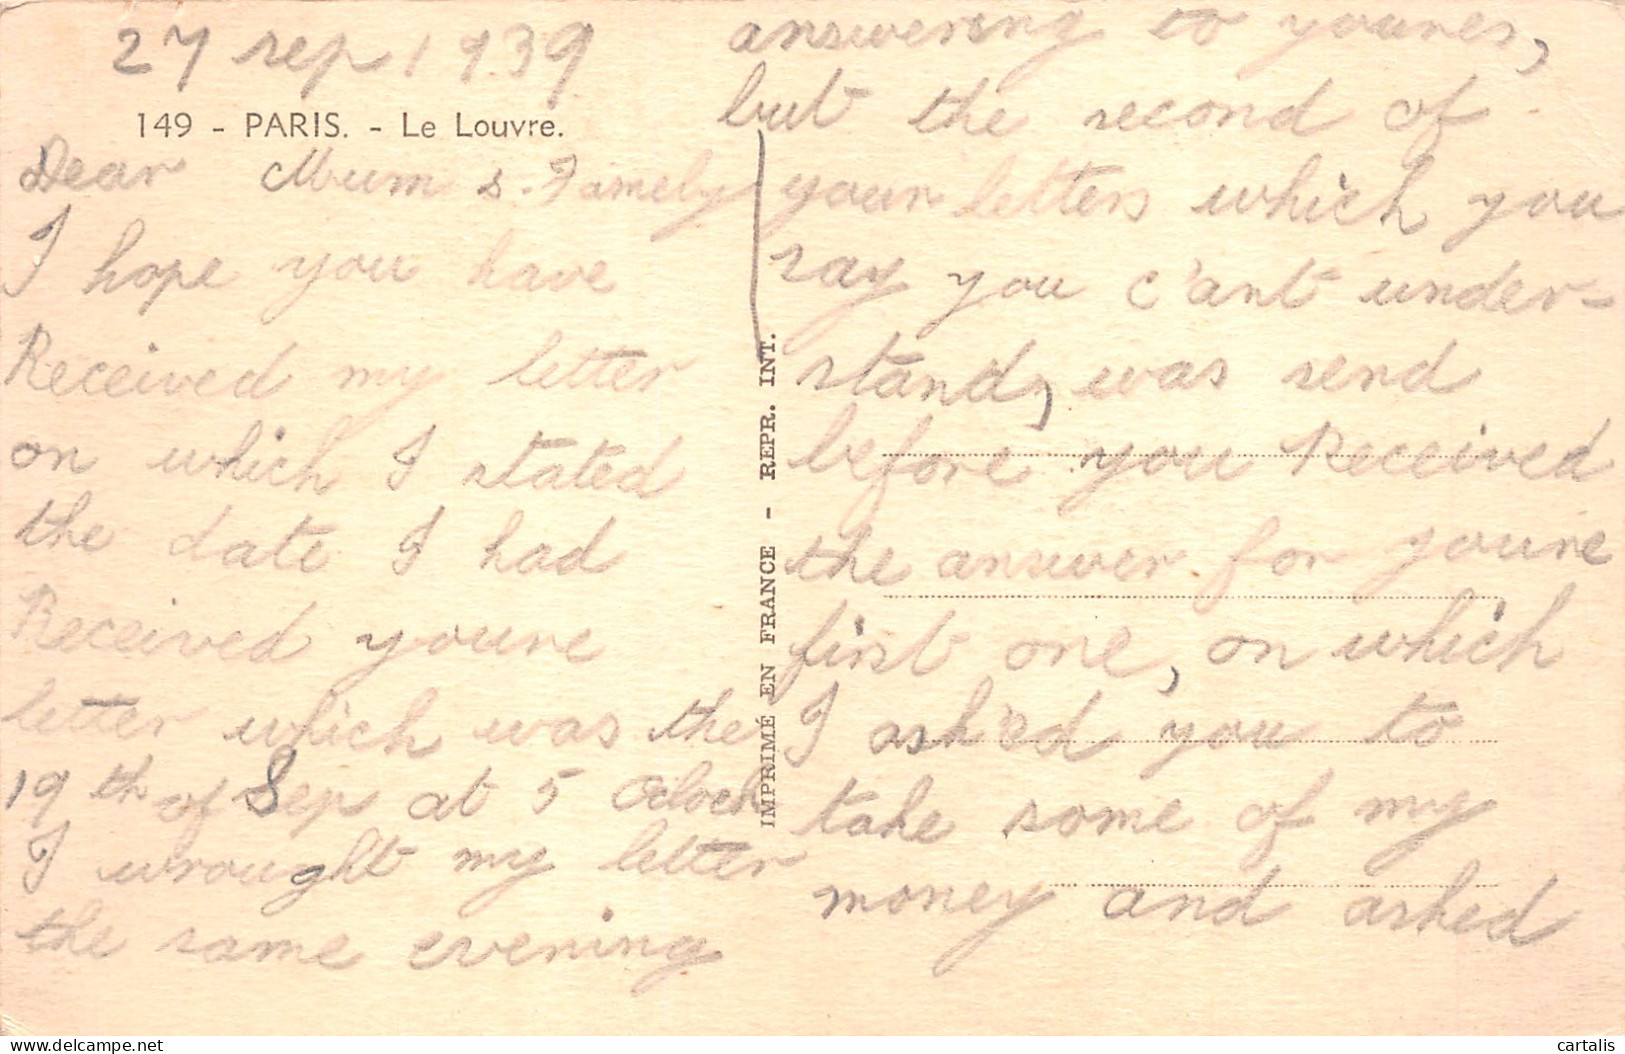 27 sep 1939
149 - PARIS. - Le Louvre.
Dear Mum & Famely
I hope you have
Received my letter
on which I stated
the date I had
Received youre
letter which was the
19th of Sep at 5 Oclock
I wrought my letter
the same evening
IMPRIMÉ EN FRANCE - REPR. INT.
answering to youres,
but the second of
your letters which you
say you c'ant under-
stand, was send
before you Received
the answer for youre
first one, on which
I ask'ed you to
take some of my
money and asked
cartalis